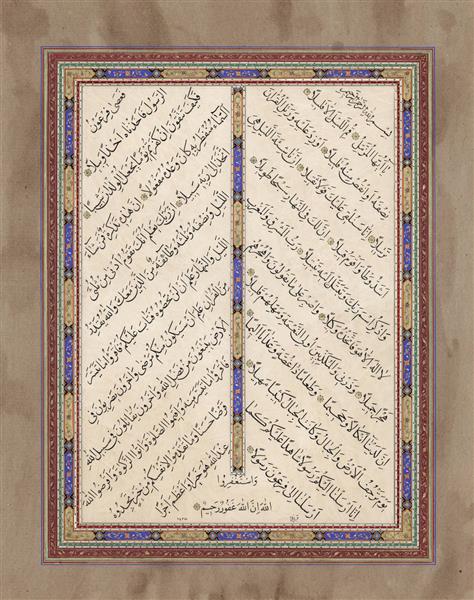 بسم الله الرحمن الرحيم
يا أيها المزمل قم الليل إلا قليلا
نصفه أو انقص منه قليلا أو زد عليه ورتل القرآن
ترتيلا إنا سنلقي عليك قولا ثقيلا إن ناشئة الليل هي
أشد وطئا وأقوم قيلا إن لك في النهار سبحا طويلا
واذكر اسم ربك وتبتل إليه تبتيلا رب المشرق والمغرب
لا إله إلا هو فاتخذه وكيلا واصبر على ما يقولون واهجرهم
هجرا جميلا وذرني والمكذبين أولي النعمة ومهلهم قليلا
إن لدينا أنكالا وجحيما وطعاما ذا غصة وعذابا أليما
يوم ترجف الأرض والجبال وكانت الجبال كثيبا مهيلا
إنا أرسلنا إليكم رسولا شاهدا عليكم كما
أرسلنا إلى فرعون رسولا
فعصى فرعون
الرسول فأخذناه أخذا وبيلا
فكيف تتقون إن كفرتم يوما يجعل الولدان شيبا
السماء منفطر به كان وعده مفعولا إن هذه تذكرة فمن شاء
اتخذ إلى ربه سبيلا إن ربك يعلم أنك تقوم أدنى من ثلثي
الليل ونصفه وثلثه وطائفة من الذين معك والله يقدر
الليل والنهار علم أن لن تحصوه فتاب عليكم فاقرءوا ما تيسر
من القرآن علم أن سيكون منكم مرضى وآخرون يضربون في
الأرض يبتغون من فضل الله وآخرون يقاتلون في سبيل الله
فاقرءوا ما تيسر منه وأقيموا الصلوة وآتوا الزكوة وأقرضوا الله
قرضا حسنا وما تقدموا لأنفسكم من خير تجدوه
عند الله هو خيرا وأعظم أجرا
واستغفروا
الله إن الله غفور رحيم